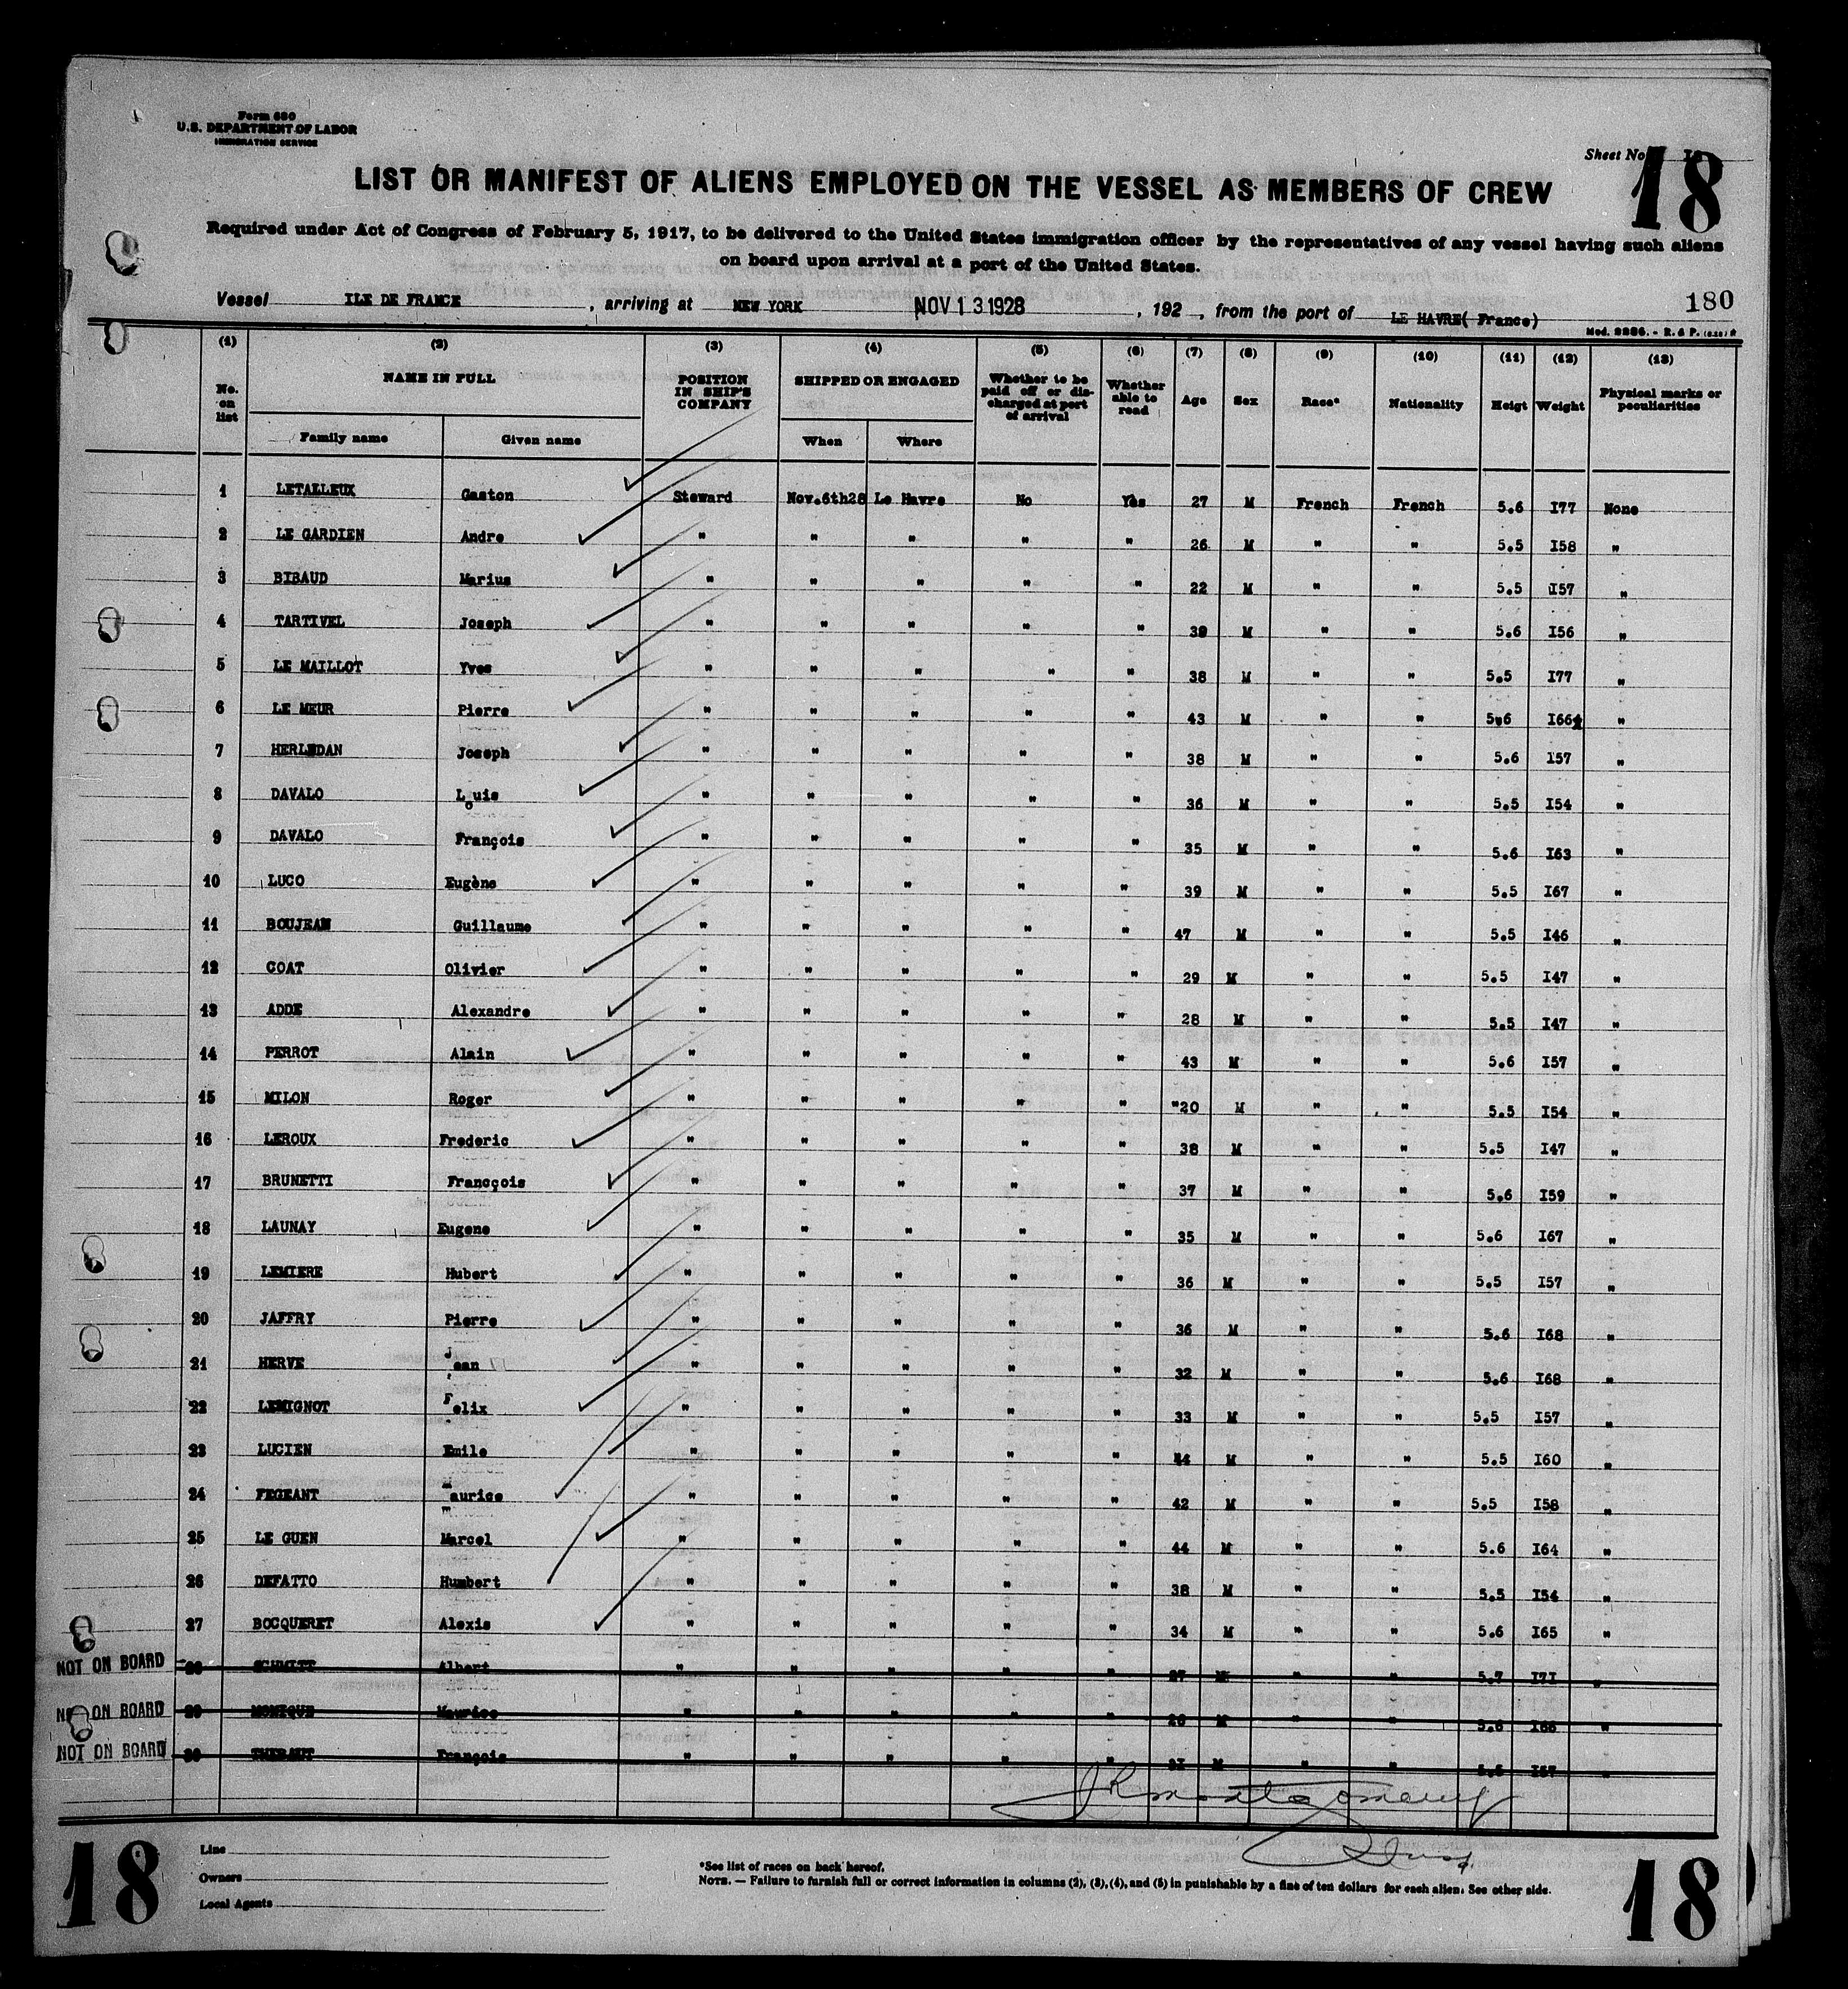 Form 680
U.S. DEPARTMENT OF LABOR
IMMIGRATION SERVICE
Sheet No. 18
LIST OR MANIFEST OF ALIENS EMPLOYED ON THE VESSEL AS MEMBERS OF CREW
Required under Act of Congress of February 5, 1917, to be delivered to the United States immigration officer by the representatives of any vessel having such aliens
on board upon arrival at a port of the United States.
180
Vessel ILE DE FRANCE, arriving at NEW YORK NOV 13 1928, 192 , from the port of LE HAVRE( France)
Mod. 2286. - R. & P.
(1) (2) (3) (4) (5) (6) (7) (8) (9) (10) (11) (12) (13)
No. on list NAME IN FULL POSITION IN SHIP'S COMPANY SHIPPED OR ENGAGED Whether to be paid off or discharged at port of arrival Whether able to read Age Sex Race* Nationality Heigt Weight Physical marks or peculiarities
Family name Given name When Where
1 LETALLEUX Gaston Steward Nov.6th28 Le Havre No Yes 27 M French French 5.6 I77 None
2 LE GARDIEN Andre " " " " " 26 M " " 5.5 I58 "
3 BIBAUD Marius " " " " " 22 M " " 5.5 I57 "
4 TARTIVEL Joseph " " " " " 39 M " " 5.6 I56 "
5 LE MAILLOT Yves " " " " " 38 M " " 5.5 I77 "
6 LE MEUR Pierre " " " " " 43 M " " 5.6 I66 "
7 HERLEDAN Joseph " " " " " 38 M " " 5.6 157 "
8 DAVALO Louis " " " " " 36 M " " 5.5 I54 "
9 DAVALO François " " " " " 35 M " " 5.6 I63 "
10 LUCO Eugène " " " " " 39 M " " 5.5 I67 "
11 BOUJEAN Guillaume " " " " " 47 M " " 5.5 I46 "
12 COAT Olivier " " " " " 29 M " " 5.5 I47 "
13 ADDE Alexandre " " " " " 28 M " " 5.5 I47 "
14 PERROT Alain " " " " " 43 M " " 5.6 I57 "
15 MILON Roger " " " " " "20 M " " 5.5 I54 "
16 LEROUX Frederic " " " " " 38 M " " 5.5 I47 "
17 BRUNETTI Francçois " " " " " 37 M " " 5.6 I59 "
18 LAUNAY Eugene " " " " " 35 M " " 5.6 I67 "
19 LEMIERE Hubert " " " " " 36 M " " 5.5 I57 "
20 JAFFRY Pierre " " " " " 36 M " " 5.6 I68 "
21 HERVE Jean " " " " " 32 M " " 5.6 I68 "
22 LEMIGNOT Felix " " " " " 33 M " " 5.5 I57 "
23 LUCIEN Emile " " " " " 44 M " " 5.5 I60 "
24 FEGEANT Maurice " " " " " 42 M " " 5.5 I58 "
25 LE GUEN Marcel " " " " " 44 M " " 5.6 I64 "
26 DEFATTO Humbert " " " " " 38 M " " 5.5 I54 "
27 BOCQUERET Alexis " " " " " 34 M " " 5.6 I65 "
NOT ON BOARD 28 SCHMITT Albert " " " " " 27 M " " 5.7 I7I "
NOT ON BOARD 29 MONIQUE Maurice " " " " " 26 M " " 5.6 I66 "
NOT ON BOARD 30 François " " " " " M " " 5.6 I57 "
JR Montgomery
Line
Owners
Local Agents
*See list of races on back hereof.
NOTE. — Failure to furnish full or correct information in columns (2), (3), (4), and (5) in punishable by a fine of ten dollars for each alien. See other side.
18
18